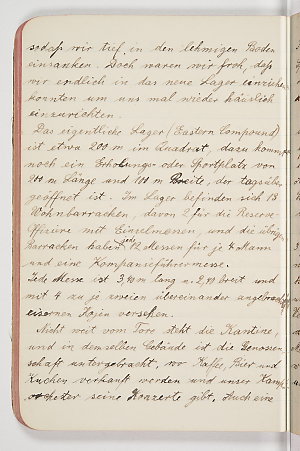 sodaß wir tief in den lehmigen Boden
einsanken. Doch waren wir froh, daß
wir endlich in das neue Lager einziehen
konnten um uns mal wieder häuslich
einzurichten.
Das eigentliche Lager (Eastern Compound)
ist etwa 200 m im Quadrat, dazu kommt
noch ein Erholungs- oder Sportplatz von
200 m Länge und 100 m Breite, der tagsüber
geöffnet ist. Im Lager befinden sich 13
Wohnbarracken, davon 2 für die Reserve-
offiziere mit Einzelmessen, und die übrigen
Barracken haben 12 Messen für je 4 Mann
und eine Kompanieführermesse.
Jede Messe ist 3,40 m lang u. 2,40 breit und
mit 4 zu je zweien übereinander angebrachten
eisernen Kojen versehen.
Nicht weit vom Tore steht die Kantine,
und in demselben Gebäude ist die Genossen-
schaft untergebracht, wo Kaffee, Bier und
Kuchen verkauft werden und unser Kamp-
orchester seine Konzerte gibt. Auch eine